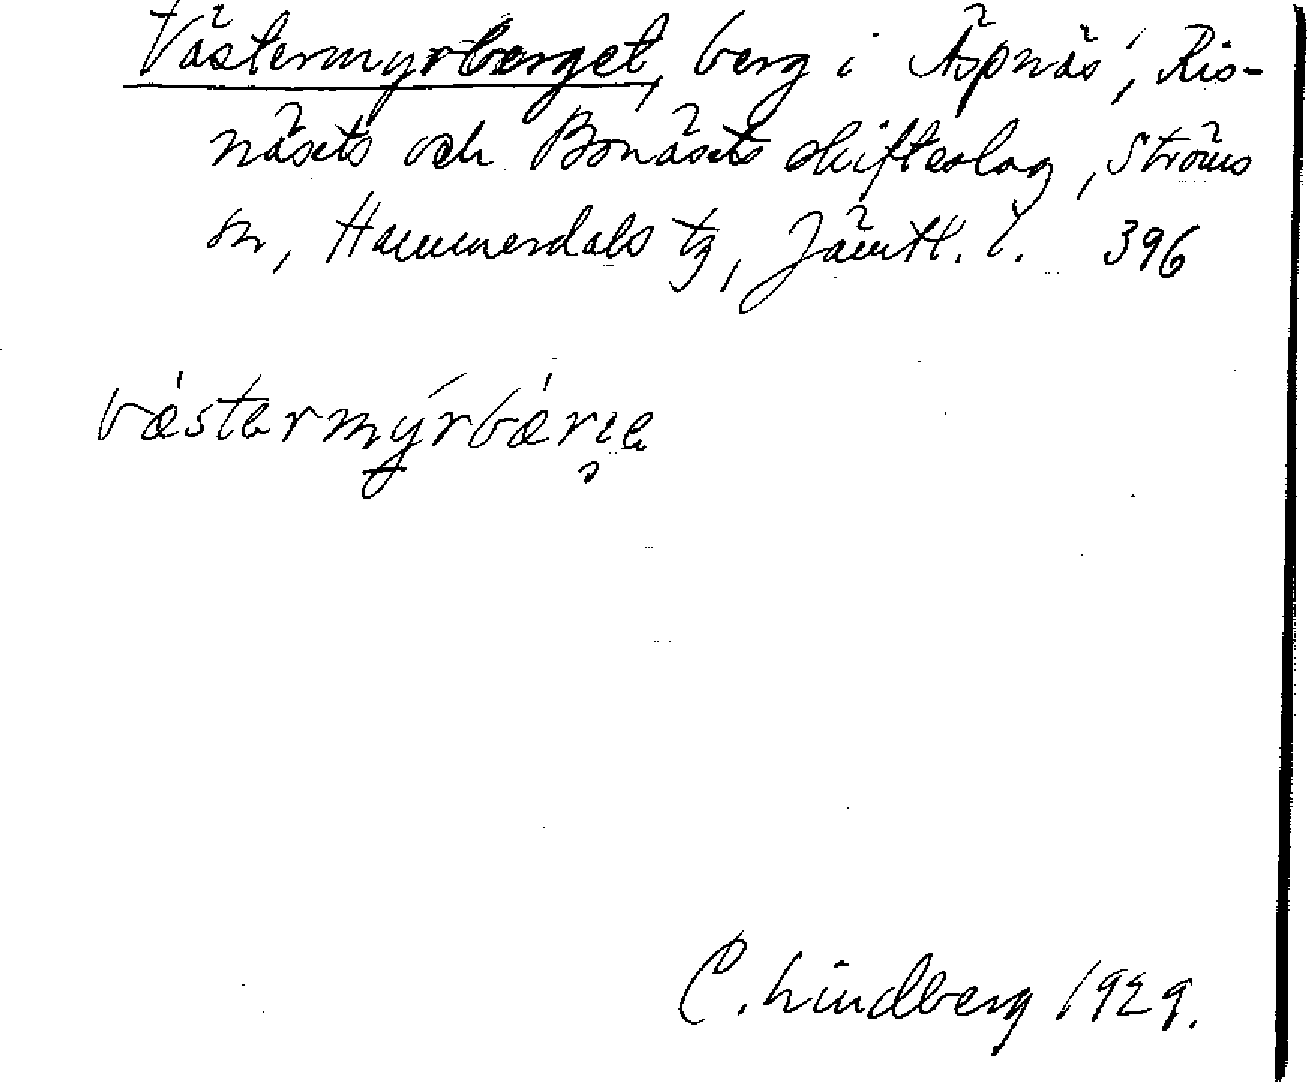 Västermyrberget, berg i Äspnäs', Ris-
näsets och Bonäsets skifteslag, Ströms
sn, Hammerdals tg, Jämtl. l. 396
væ´stermy´rbæ´rɪe
C. Lindberg 1929.